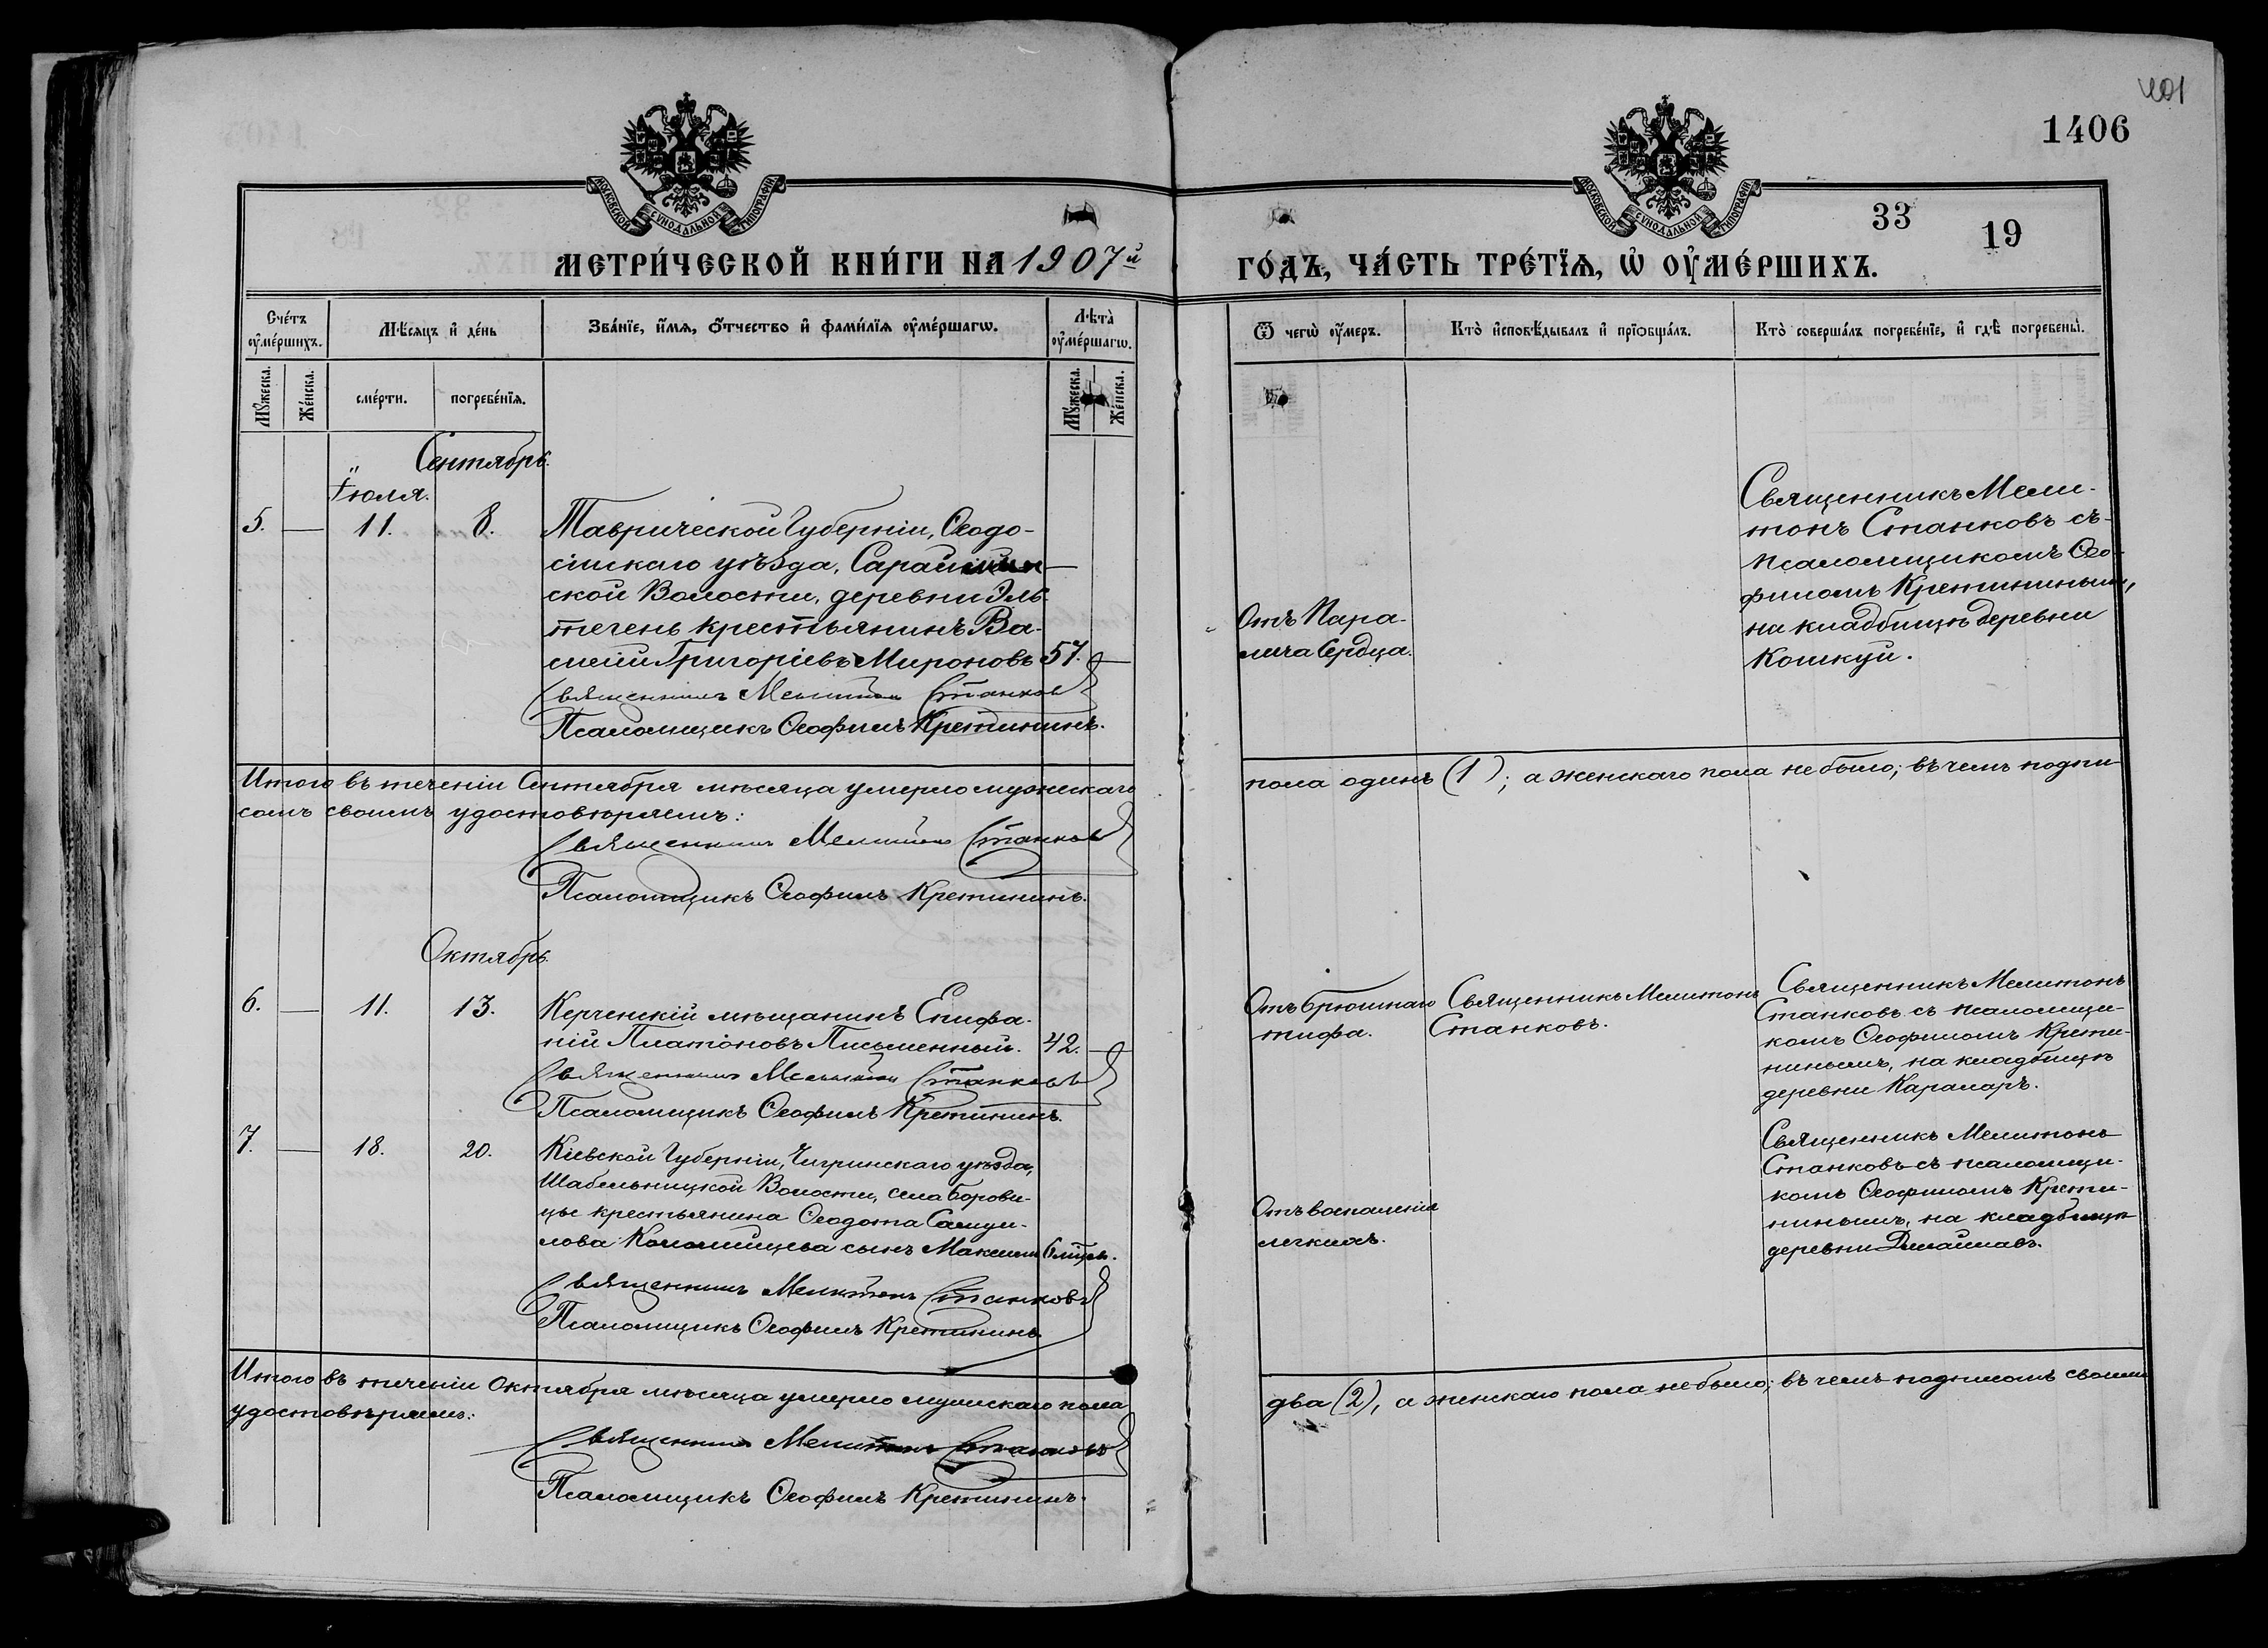 401
1406
МОСКОВСКОЙ СѴНОДАЛЬНОЙ ТИПОГРАФІИ
МОСКОВСКОЙ СѴНОДАЛЬНОЙ ТИПОГРАФІИ
33
19
МЕТРИ́ЧЕСКОЙ КНИ́ГИ НА 1907й
ГО́ДЪ, ЧА́СТЬ ТРЕ́ТЇѦ, Ѡ҆ ОУ҆МЕ́РШИХЪ.
Сче́тъ оу҆ме́ршихъ.
Мѣ́сяцъ и҆ де́нь
Зва́нїе, и҆́мѧ, ѻ҆́тчество и҆ фами́лїѧ оу҆ме́ршагѡ.
Лѣ́та оу҆ме́ршагѡ.
Ѿ чегѡ̀ оу҆́меръ.
Кто̀ и҆сповѣ́дывалъ и҆ прїѡбща́лъ.
Кто̀ соверша́лъ погребе́нїе, и҆ гдѣ̀ погребены̀.
Мꙋ́жеска.
Же́нска.
сме́рти.
погребе́нїѧ.
Мꙋ́жеска.
Же́нска.
Сентябрь.
Іюля.
5. — 11. 8.
Таврической Губерніи, Ѳеодо-
сійскаго уѣзда,
ской Волости, деревни Эль-
течень крестьянинъ Ва-
силій Григорьевъ Мироновъ 57. —
Священникъ Мелитонъ Станковъ
Псаломщикъ Ѳеофилъ Кретининъ.
Отъ Пара-
лича Сердца.
Священникъ Мели-
тонъ Станковъ съ
псаломщикомъ Ѳео-
филомъ Кретининымъ,
на кладбищѣ деревни
Кошкуй.
Итого въ теченіи Сентября мѣсяца умерло мужескаго
пола одинъ (1); а женскаго пола не было; въ чемъ подпи-
сомъ своимъ удостовѣряемъ:
Священникъ Мелитонъ Станковъ
Псаломщикъ Ѳеофилъ Кретининъ.
Октябрь.
6. — 11. 13.
Керченскій мѣщанинъ Епифа-
ній Платоновъ Письменный. 42. —
Священникъ Мелитонъ Станковъ
Псаломщикъ Ѳеофилъ Кретининъ.
Отъ брюшнаго
тифа.
Священникъ Мелитонъ
Станковъ.
Священникъ Мелитонъ
Станковъ съ псаломщи-
комъ Ѳеофиломъ Крети-
нинымъ, на кладбищѣ
деревни Караларъ.
7. — 18. 20.
Кіевской Губерніи, Чигринскаго уѣзда,
Шабельницкой Волости, села Борови-
цы крестьянина Ѳеодота Самуи-
лова Коломійцева сынъ Максимъ 6 мѣсяц.
Священникъ Мелитонъ Станковъ
Псаломщикъ Ѳеофилъ Кретининъ.
Отъ воспаленія
легкихъ.
Священникъ Мелитонъ
Станковъ съ псаломщи-
комъ Ѳеофиломъ Крети-
нинымъ, на кладбищѣ
деревни
Итого въ теченіи Октября мѣсяца умерло мужескаго пола
два (2), а женскаго пола не было; въ чемъ подписомъ своимъ
удостовѣряемъ:
Священникъ Мелитонъ Станковъ
Псаломщикъ Ѳеофилъ Кретининъ.